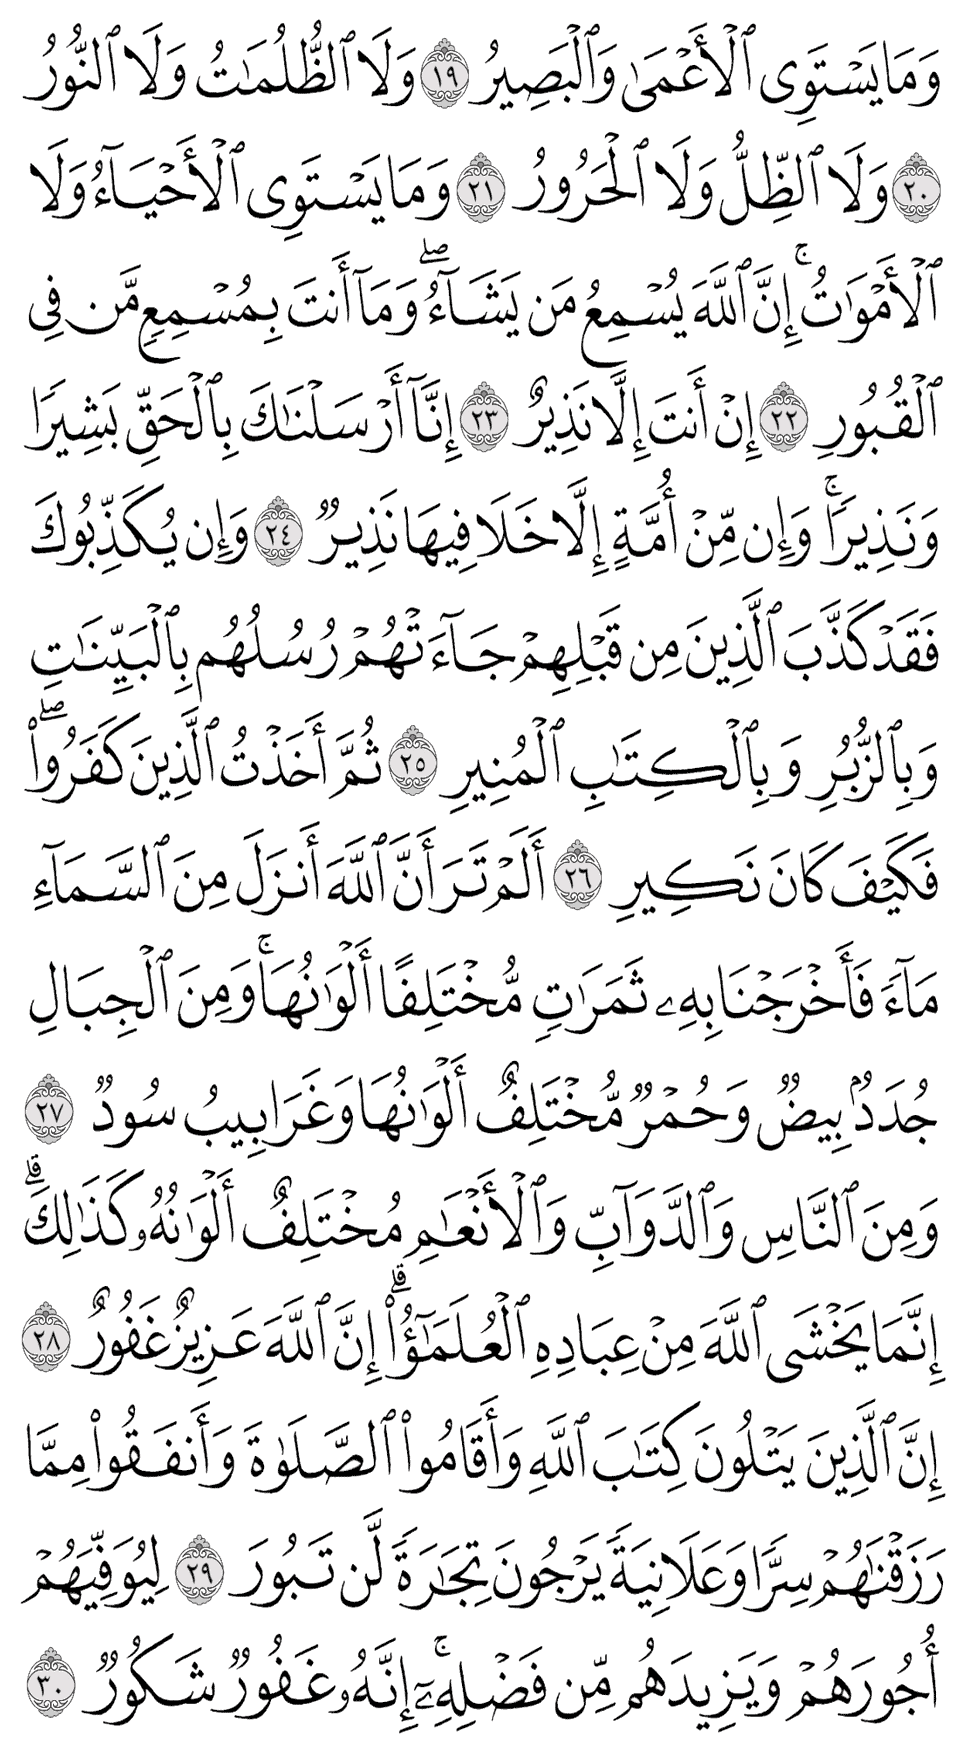 وَمَا يَسۡتَوِي ٱلۡأَعۡمَىٰ وَٱلۡبَصِيرُ ١٩ وَلَا ٱلظُّلُمَٰتُ وَلَا ٱلنُّورُ
٢٠ وَلَا ٱلظِّلُّ وَلَا ٱلۡحَرُورُ ٢١ وَمَا يَسۡتَوِي ٱلۡأَحۡيَآءُ وَلَا
ٱلۡأَمۡوَٰتُۚ إِنَّ ٱللَّهَ يُسۡمِعُ مَن يَشَآءُۖ وَمَآ أَنتَ بِمُسۡمِعٖ مَّن فِي
ٱلۡقُبُورِ ٢٢ إِنۡ أَنتَ إِلَّا نَذِيرٌ ٢٣ إِنَّآ أَرۡسَلۡنَٰكَ بِٱلۡحَقِّ بَشِيرٗا
وَنَذِيرٗاۚ وَإِن مِّنۡ أُمَّةٍ إِلَّا خَلَا فِيهَا نَذِيرٞ ٢٤ وَإِن يُكَذِّبُوكَ
فَقَدۡ كَذَّبَ ٱلَّذِينَ مِن قَبۡلِهِمۡ جَآءَتۡهُمۡ رُسُلُهُم بِٱلۡبَيِّنَٰتِ
وَبِٱلزُّبُرِ وَبِٱلۡكِتَٰبِ ٱلۡمُنِيرِ ٢٥ ثُمَّ أَخَذۡتُ ٱلَّذِينَ كَفَرُواْۖ
فَكَيۡفَ كَانَ نَكِيرِ ٢٦ أَلَمۡ تَرَ أَنَّ ٱللَّهَ أَنزَلَ مِنَ ٱلسَّمَآءِ
مَآءٗ فَأَخۡرَجۡنَا بِهِۦ ثَمَرَٰتٖ مُّخۡتَلِفًا أَلۡوَٰنُهَاۚ وَمِنَ ٱلۡجِبَالِ
جُدَدُۢ بِيضٞ وَحُمۡرٞ مُّخۡتَلِفٌ أَلۡوَٰنُهَا وَغَرَابِيبُ سُودٞ ٢٧
وَمِنَ ٱلنَّاسِ وَٱلدَّوَآبِّ وَٱلۡأَنۡعَٰمِ مُخۡتَلِفٌ أَلۡوَٰنُهُۥ كَذَٰلِكَۗ
إِنَّمَا يَخۡشَى ٱللَّهَ مِنۡ عِبَادِهِ ٱلۡعُلَمَٰٓؤُاْۗ إِنَّ ٱللَّهَ عَزِيزٌ غَفُورٌ ٢٨
إِنَّ ٱلَّذِينَ يَتۡلُونَ كِتَٰبَ ٱللَّهِ وَأَقَامُواْ ٱلصَّلَوٰةَ وَأَنفَقُواْ مِمَّا
رَزَقۡنَٰهُمۡ سِرّٗا وَعَلَانِيَةٗ يَرۡجُونَ تِجَٰرَةٗ لَّن تَبُورَ ٢٩ لِيُوَفِّيَهُمۡ
أُجُورَهُمۡ وَيَزِيدَهُم مِّن فَضۡلِهِۦٓۚ إِنَّهُۥ غَفُورٞ شَكُورٞ ٣٠